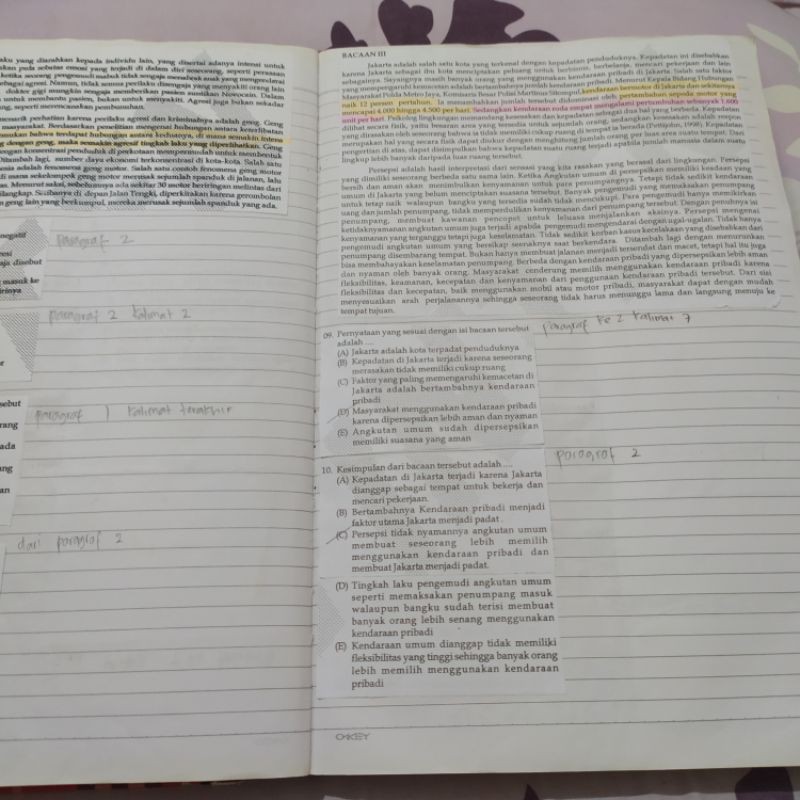 aku yang diarahkan kepada individu lain, yang disertai adanya intensi untuk
akan pada sebatas emosi yang terjadi di dalam diri seseorang, seperti perasaan
ketika seorang pengemudi mabuk tidak sengaja menabrak anak yang mengendarai
sebagai agresi. Namun, tidak semua perilaku disengaja yang menyakiti orang lain
dokter gigi mungkin sengaja memberikan pasien suntikan Novocain. Dalam
untuk membantu pasien, bukan untuk menyakiti. Agresi juga bukan sekadar
ng, seperti merencanakan pembunuhan.
menarik perhatian karena perilaku agresi dan kriminalnya adalah geng. Geng
masyarakat. Berdasarkan penelitian mengenai hubungan antara keterlibatan
mukan bahwa terdapat hubungan antara keduanya, di mana semakin intens
g dengan geng, maka semakin agresif tingkah laku yang diperlihatkan. Geng
ngan konsentrasi penduduk di perkotaan mempermudah untuk membentuk
Ditambah lagi, sumber daya ekonomi terkonsentrasi di kota-kota. Salah satu
nesia adalah fenomena geng motor. Salah satu contoh fenomena geng motor
di mana sekelompok geng motor merusak sejumlah spanduk di jalanan, lalu
Menurut saksi, sebelumnya ada sekitar 30 motor beriringan melintas dari
Cilangkap. Setibanya di depan Jalan Tengki, diperkirakan karena gerombolan
n geng lain yang berkumpul, mereka merusak sejumlah spanduk yang ada.
negatif
paragraf 2
aja disebut
masuk ke
paragraf 2 kalimat 2
sebut
paragraf 1 kalimat terakhir
rang
ada
ng
an
dari paragraf 2
BACAAN III
Jakarta adalah salah satu kota yang terkenal dengan kepadatan penduduknya. Kepadatan ini disebabkan
karena Jakarta sebagai ibu kota menciptakan peluang untuk berbisnis, berbelanja, mencari pekerjaan dan lain
sebagainya. Sayangnya masih banyak orang yang menggunakan kendaraan pribadi di Jakarta. Salah satu faktor
yang mempengaruhi kemacetan adalah bertambahnya jumlah kendaraan pribadi. Menurut Kepala Bidang Hubungan
Masyarakat Polda Metro Jaya, Komisaris Besar Polisi Martinus Sitompul, kendaraan bermotor di Jakarta dan sekitarnya
naik 12 persen pertahun. Ia menambahkan jumlah tersebut didominasi oleh pertambahan sepeda motor yang
mencapai 4.000 hingga 4.500 per hari. Sedangkan kendaraan roda empat mengalami pertumbuhan sebanyak 1.600
unit per hari. Psikolog lingkungan memandang kesesakan dan kepadatan sebagai dua hal yang berbeda. Kepadatan
dilihat secara fisik, yaitu besaran area yang tersedia untuk sejumlah orang, sedangkan kesesakan adalah respon
yang dirasakan oleh seseorang bahwa ia tidak memiliki cukup ruang di tempat ia berada (Veitch, 1998). Kepadatan
merupakan hal yang secara fisik dapat diukur dengan menghitung jumlah orang per luas area suatu tempat. Dari
pengertian di atas, dapat disimpulkan bahwa kepadatan suatu ruang terjadi apabila jumlah manusia dalam suatu
lingkup lebih banyak daripada luas ruang tersebut.
Persepsi adalah hasil interpretasi dari sensasi yang kita rasakan yang berasal dari lingkungan. Persepsi
yang dimiliki seseorang berbeda satu sama lain. Ketika Angkutan umum di persepsikan memiliki keadaan yang
bersih dan aman akan menimbulkan kenyamanan untuk para penumpangnya. Tetapi tidak sedikit kendaraan
umum di Jakarta yang belum menciptakan suasana tersebut. Banyak pengemudi yang memaksakan penumpang
untuk tetap naik walaupun bangku yang tersedia sudah tidak mencukupi. Para pengemudi hanya memikirkan
uang dan jumlah penumpang, tidak memperdulikan kenyamanan dari penumpang tersebut. Dengan penuhnya isi
penumpang, membuat kawanan pencopet untuk leluasa menjalankan aksinya. Persepsi mengenai
ketidaknyamanan angkutan umum juga terjadi apabila pengemudi mengendarai dengan ugal-ugalan. Tidak hanya
kenyamanan yang terganggu tetapi juga keselamatan. Tidak sedikit korban kasus kecelakaan yang disebabkan dari
pengemudi angkutan umum yang bersikap seenaknya saat berkendara. Ditambah lagi dengan menurunkan
penumpang disembarang tempat. Bukan hanya membuat jalanan menjadi tersendat dan macet, tetapi hal itu juga
bisa membahayakan keselamatan penumpang. Berbeda dengan kendaraan pribadi yang dipersepsikan lebih aman
dan nyaman oleh banyak orang. Masyarakat cenderung memilih menggunakan kendaraan pribadi karena
fleksibilitas, keamanan, kecepatan dan kenyamanan dari penggunaan kendaraan pribadi tersebut. Dari sisi
fleksibilitas dan kecepatan, baik menggunakan mobil atau motor pribadi, masyarakat dapat dengan mudah
menyesuaikan arah perjalanannya sehingga seseorang tidak harus menunggu lama dan langsung menuju ke
tempat tujuan.
09. Pernyataan yang sesuai dengan isi bacaan tersebut
adalah ....
paragraf ke 2 kalimat 7
(A) Jakarta adalah kota terpadat penduduknya
(B) Kepadatan di Jakarta terjadi karena seseorang
merasakan tidak memiliki cukup ruang
(C) Faktor yang paling memengaruhi kemacetan di
Jakarta adalah bertambahnya kendaraan
pribadi
(D) Masyarakat menggunakan kendaraan pribadi
karena dipersepsikan lebih aman dan nyaman
(E) Angkutan umum sudah dipersepsikan
memiliki suasana yang aman
paragraf 2
10. Kesimpulan dari bacaan tersebut adalah ....
(A) Kepadatan di Jakarta terjadi karena Jakarta
dianggap sebagai tempat untuk bekerja dan
mencari pekerjaan.
(B) Bertambahnya Kendaraan pribadi menjadi
faktor utama Jakarta menjadi padat.
(C) Persepsi tidak nyamannya angkutan umum
membuat seseorang lebih memilih
menggunakan kendaraan pribadi dan
membuat Jakarta menjadi padat.
(D) Tingkah laku pengemudi angkutan umum
seperti memaksakan penumpang masuk
walaupun bangku sudah terisi membuat
banyak orang lebih senang menggunakan
kendaraan pribadi
(E) Kendaraan umum dianggap tidak memiliki
fleksibilitas yang tinggi sehingga banyak orang
lebih memilih menggunakan kendaraan
pribadi
OKEY